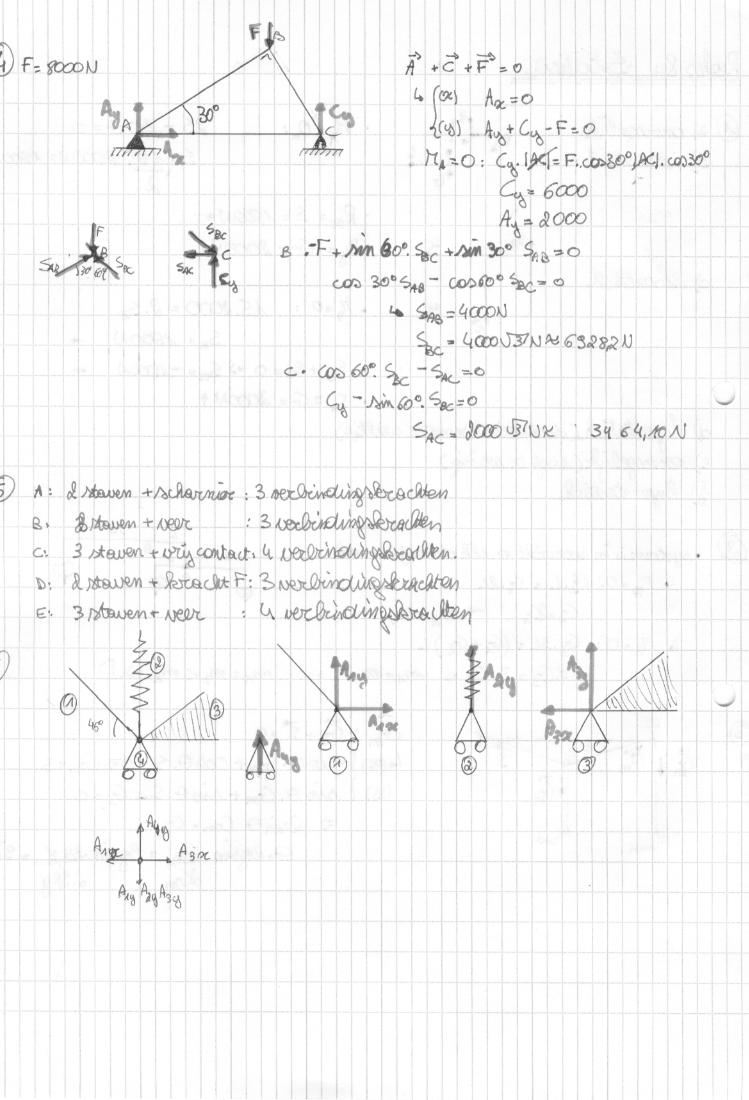 F = 8000N
F B
Ay A 30° Cy C
Ax
A + C + F = 0
(x) Ax = 0
(y) Ay + Cy - F = 0
MA = 0 : Cy . |AC| = F . cos30° |AC| . cos30°
Cy = 6000
Ay = 2000
F B SAB 30° 60° SBC
SBC SAC C Cy
B : -F + sin 60° . SBC + sin 30° SAB = 0
cos 30° SAB - cos 60° SBC = 0
↳ SAB = 4000N
SBC = 4000 √3 N ≈ 6928,2 N
C . cos 60° . SBC - SAC = 0
Cy - sin 60° . SBC = 0
SAC = 2000 √3 N ≈ 3464,10 N
A : 2 staven + scharnier : 3 verbindingskrachten
B : 2 staven + veer : 3 verbindingskrachten
C : 3 staven + vrij contact : 4 verbindingskrachten.
D : 2 staven + kracht F : 3 verbindingskrachten
E : 3 staven + veer : 4 verbindingskrachten
① 45° ② ③ ④
A4y
A1y A1x ①
A2y ②
A3y A3x ③
A4y
A1x A3x
A1y A2y A3y